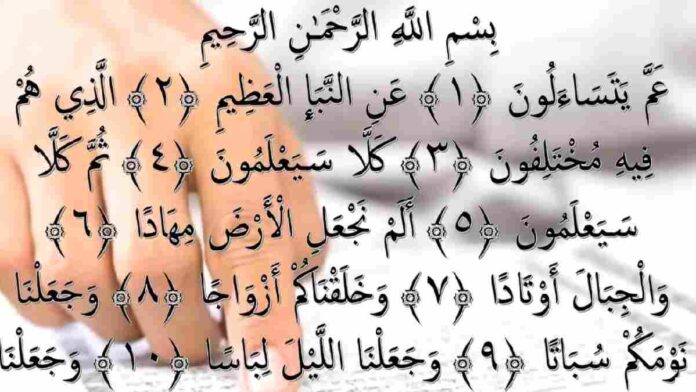 بِسْمِ اللَّهِ الرَّحْمَٰنِ الرَّحِيمِ
عَمَّ يَتَسَاءَلُونَ ﴿١﴾ عَنِ النَّبَإِ الْعَظِيمِ ﴿٢﴾ الَّذِي هُمْ
فِيهِ مُخْتَلِفُونَ ﴿٣﴾ كَلَّا سَيَعْلَمُونَ ﴿٤﴾ ثُمَّ كَلَّا
سَيَعْلَمُونَ ﴿٥﴾ أَلَمْ نَجْعَلِ الْأَرْضَ مِهَادًا ﴿٦﴾
وَالْجِبَالَ أَوْتَادًا ﴿٧﴾ وَخَلَقْنَاكُمْ أَزْوَاجًا ﴿٨﴾ وَجَعَلْنَا
نَوْمَكُمْ سُبَاتًا ﴿٩﴾ وَجَعَلْنَا اللَّيْلَ لِبَاسًا ﴿١٠﴾ وَجَعَلْنَا